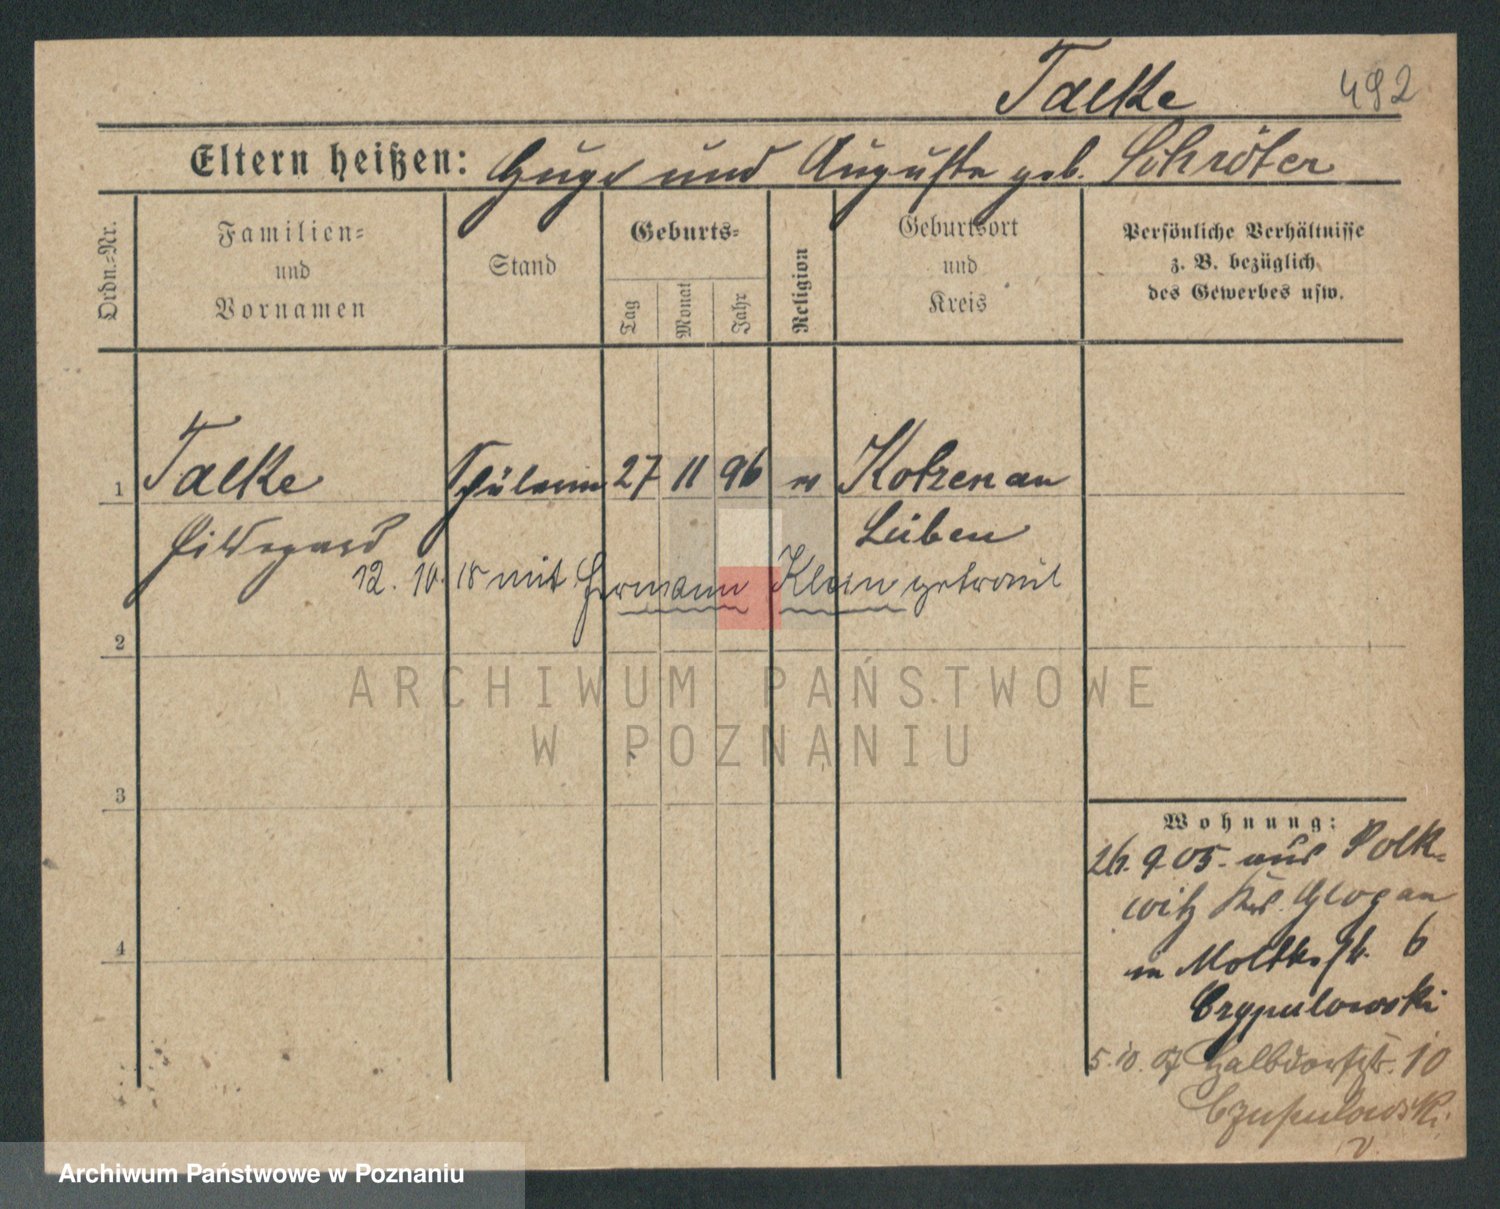 Talke 492
Eltern heißen: Hugo und Auguste geb. Schröter
Ordn.-Nr.
Familien-
und
Vornamen
Stand
Geburts-
Tag
Monat
Jahr
Religion
Geburtsort
und
Kreis
Persönliche Verhältnisse
z. B. bezüglich
des Gewerbes usw.
1 Talke Schülerin 27 11 96 ev Kotzenau
Hildegard Lüben
12. 10. 18 mit Hermann Klein getraut
2
3
4
ARCHIWUM PAŃSTWOWE
W POZNANIU
Wohnung:
26. 9 05. aus Polk-
witz Krs. Glogau
n Moltkestr. 6
5. 10. 07 Halbdorfstr. 10
Archiwum Państwowe w Poznaniu